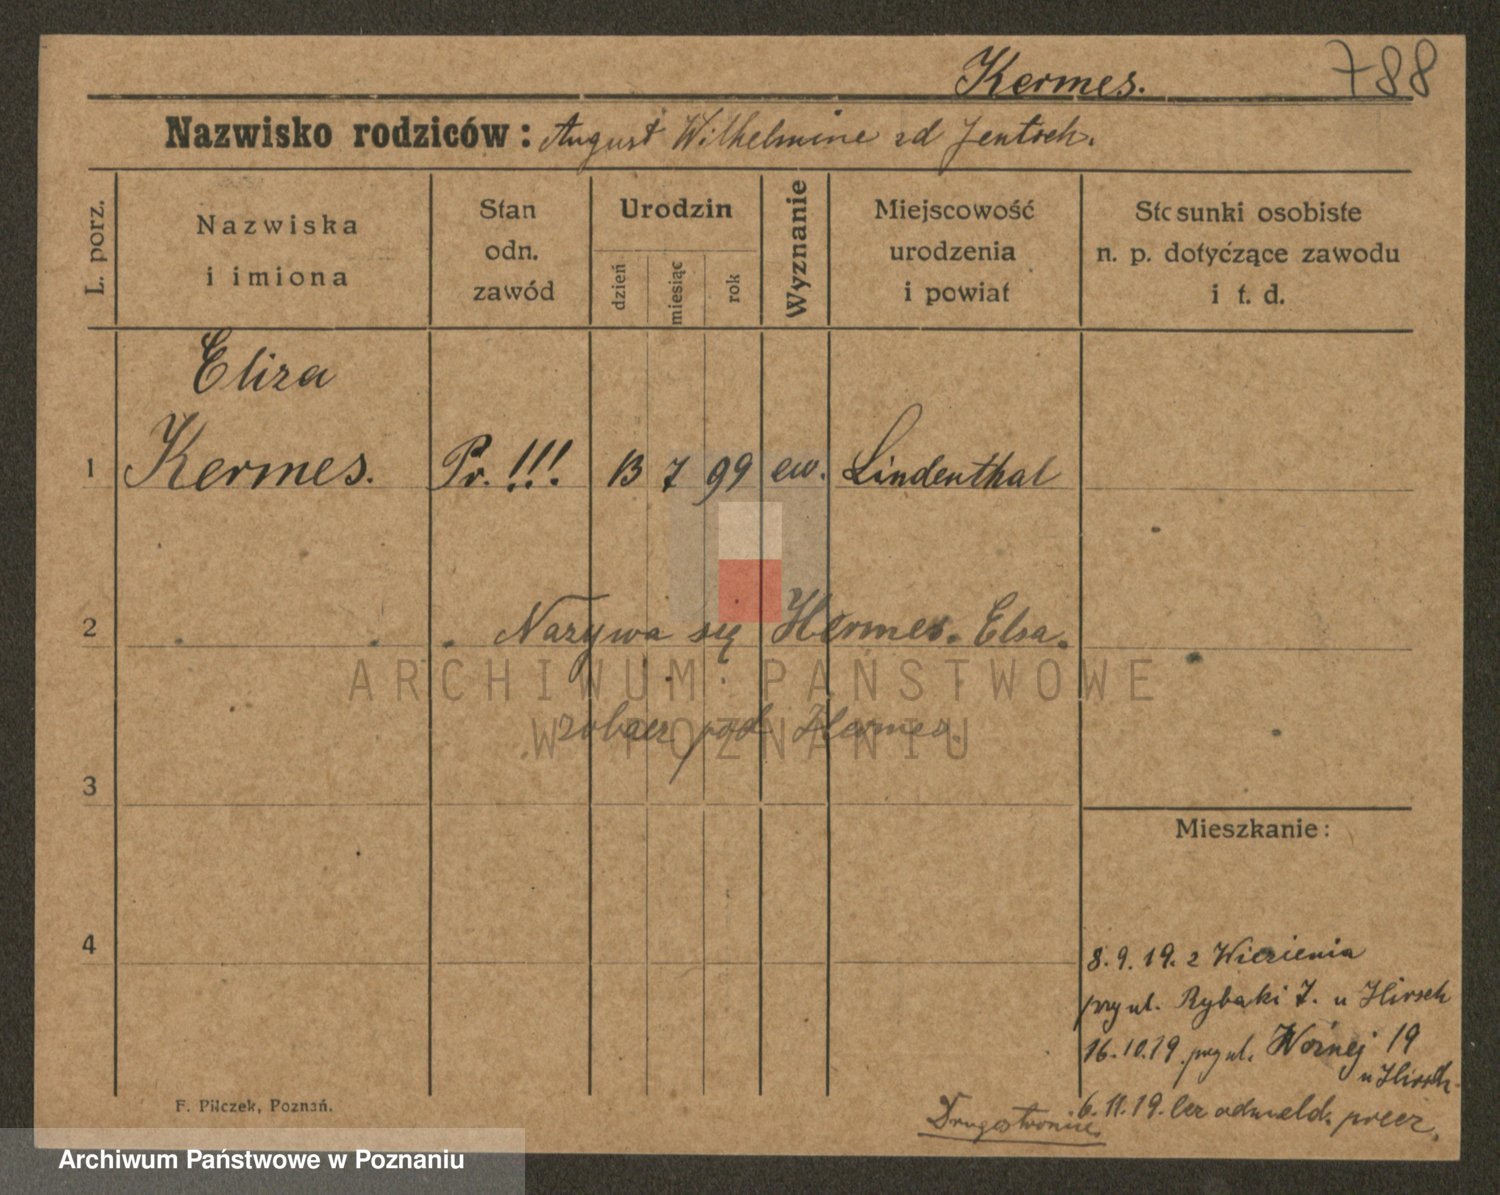 Kermes.
788
Nazwisko rodziców: August Wilhelmine zd Jentsch.
L. porz.
Nazwiska
i imiona
Stan
odn.
zawód
Urodzin
dzień
miesiąc
rok
Wyznanie
Miejscowość
urodzenia
i powiat
Stosunki osobiste
n. p. dotyćzące zawodu
i t. d.
Eliza
1 Kermes. Pr. !!! 13 7 99 ew. Lindenthal
2 Nazywa się Hermes. Elsa.
ARCHIWUM PAŃSTWOWE
W POZNANIU
zobacz pod Hermes.
3
Mieszkanie:
4
8.9.19. z Wiezienia
przy ul. Rybaki 7. u Hirsch
16.10.19. przy ul. Woźnej 19
u Hirsch.
6.11.19. bez odmeld. precz.
Drugostronnie
F. Pilczek, Poznań.
Archiwum Państwowe w Poznaniu